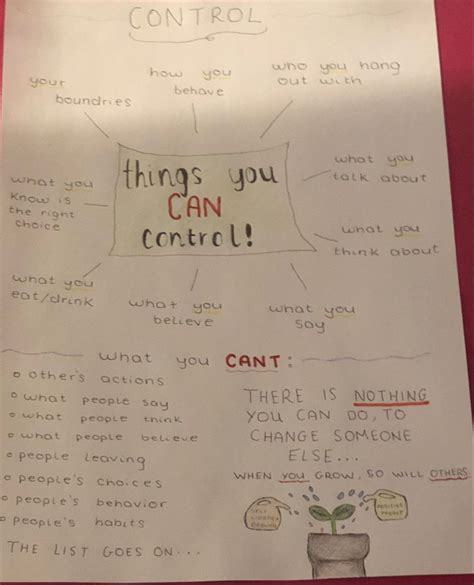 CONTROL
your
boundries
how you
behave
who you hang
out with
what you
know is
the right
choice
things you
CAN
control!
what you
talk about
what you
think about
what you
eat/drink
what you
believe
what you
say
what you CANT:
others actions
what people say
what people think
what people believe
people leaving
people's choices
people's behavior
people's habits
THE LIST GOES ON...
THERE IS NOTHING
YOU CAN DO, TO
CHANGE SOMEONE
ELSE...
WHEN YOU GROW, SO WILL OTHERS
SELF
GROWTH
POSITIVE